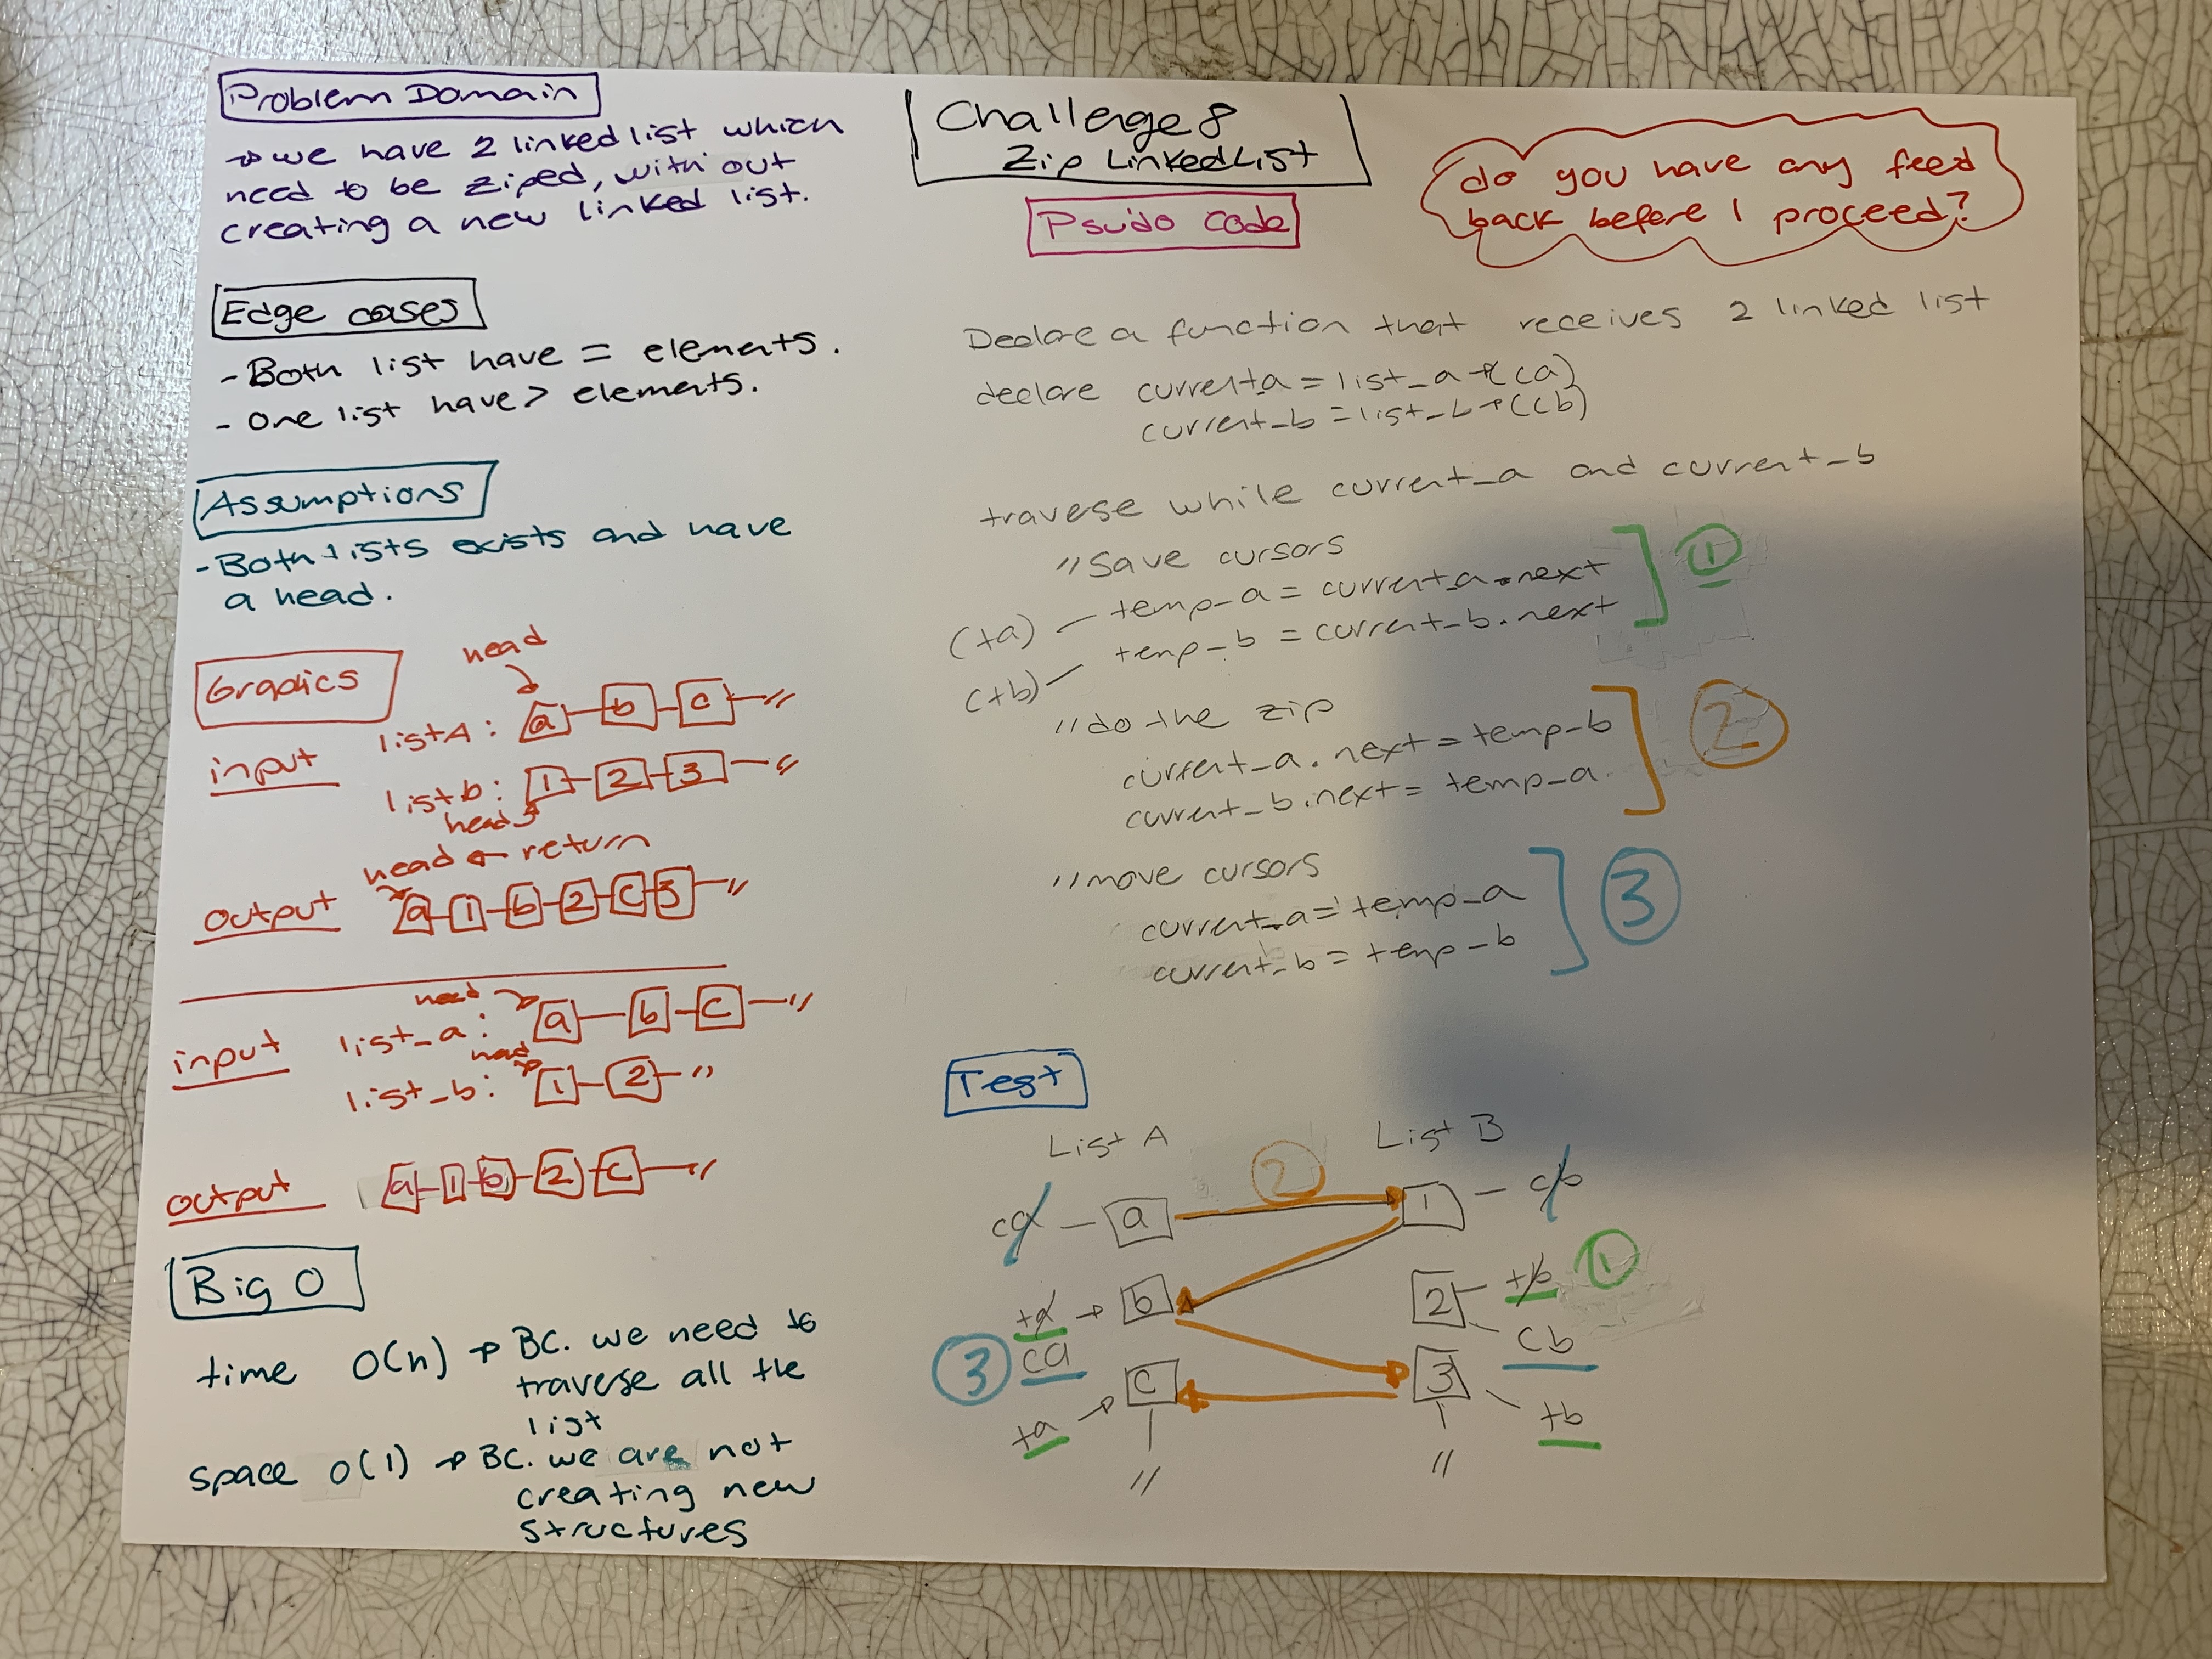 Problem Domain
→ we have 2 linked list which
need to be ziped, with out
creating a new linked list.
Edge cases
- Both list have = elements.
- One list have > elements.
Assumptions
- Both lists exists and have
a head.
Graphics
head
input
listA: a b c //
listb: 1 2 3 //
head
head ← return
output
a 1 b 2 c 3 //
head
input
list_a: a b c //
head
list_b: 1 2 //
output
a 1 b 2 c //
Big O
time O(n) → BC. we need to
traverse all the
list
space O(1) → BC. we are not
creating new
structures
Challenge 8
Zip LinkedList
do you have any feed
back before I proceed?
Psuido Code
Declare a function that receives 2 linked list
declare current_a = list_a → (ca)
current_b = list_b → (cb)
travese while current_a and current_b
// Save cursors
(ta) — temp_a = current_a.next
(tb) — temp_b = current_b.next
1
// do the zip
current_a.next = temp_b
current_b.next = temp_a.
2
// move cursors
current_a = temp_a
current_b = temp_b
3
Test
List A List B
2
ca — a 1 — cb
ta → b 2 — tb 1
3 ca cb
ta → c 3 tb
// //